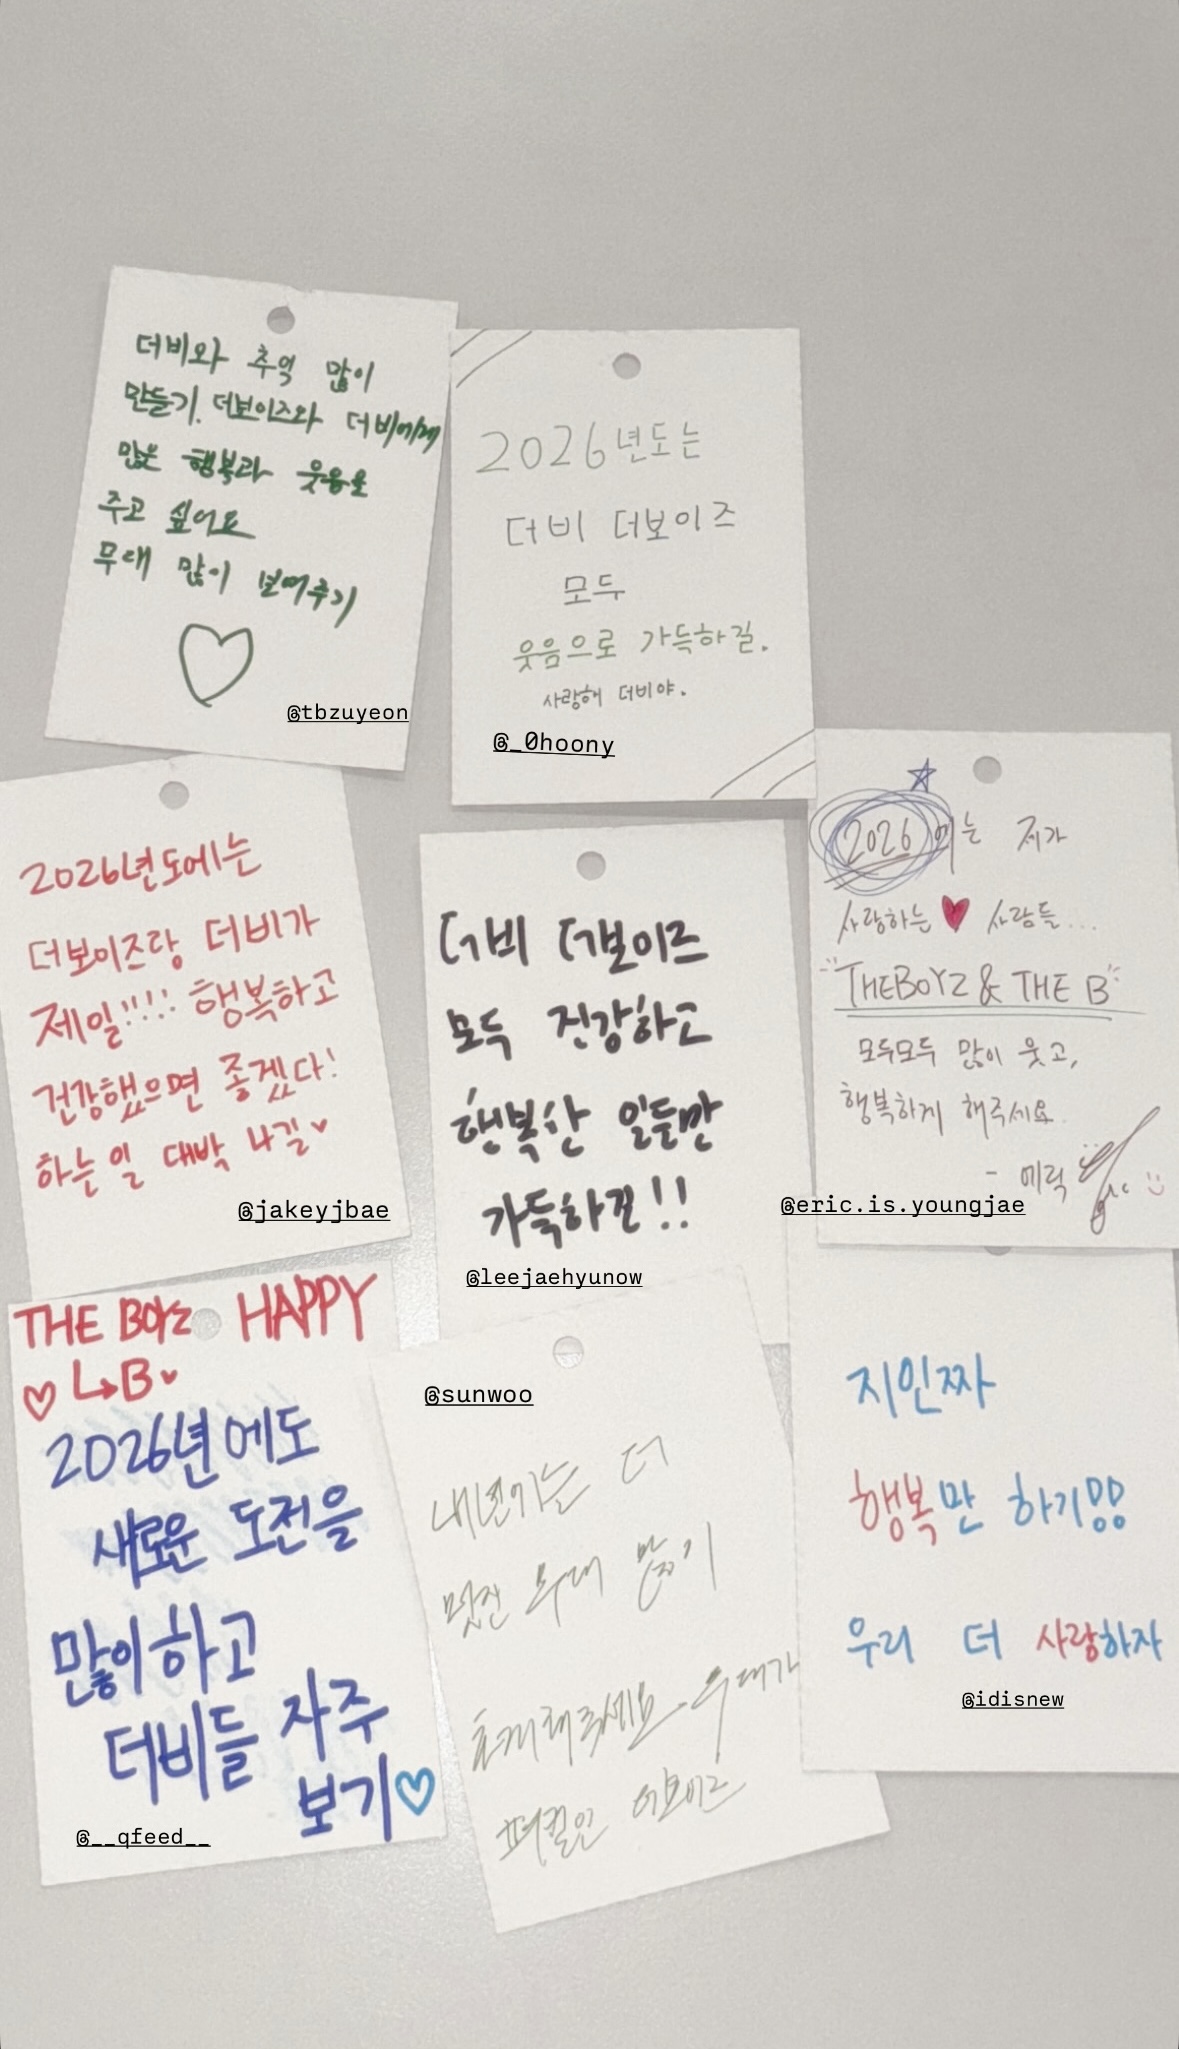 더비와 추억 많이
만들기. 더보이즈와 더비에게
많은 행복과 웃음을
주고 싶어요
무대 많이 보여주기
@tbzuyeon
2026년도는
더비 더보이즈
모두
웃음으로 가득하길.
사랑해 더비야.
@_0hoony
2026년도에는
더보이즈랑 더비가
제일!!!! 행복하고
건강했으면 좋겠다!
하는 일 대박 나길♥
@jakeyjbae
더비 더보이즈
모두 건강하고
행복한 일들만
가득하길!!
@leejaehyunow
2026에는 제가
사랑하는 ♥ 사람들...
"THEBOYZ & THE B"
모두모두 많이 웃고,
행복하게 해주세요.
- 에릭
@eric.is.youngjae
THE BOYZ HAPPY
♡ ↳B ♥
2026년에도
새로운 도전을
많이하고
더비들 자주
보기♡
@__qfeed__
@sunwoo
내년에는 더
멋진 무대 많이
하게해주세요 무대가
퍼컬인 더보이즈
지인짜
행복만 하기
우리 더 사랑하자
@idisnew